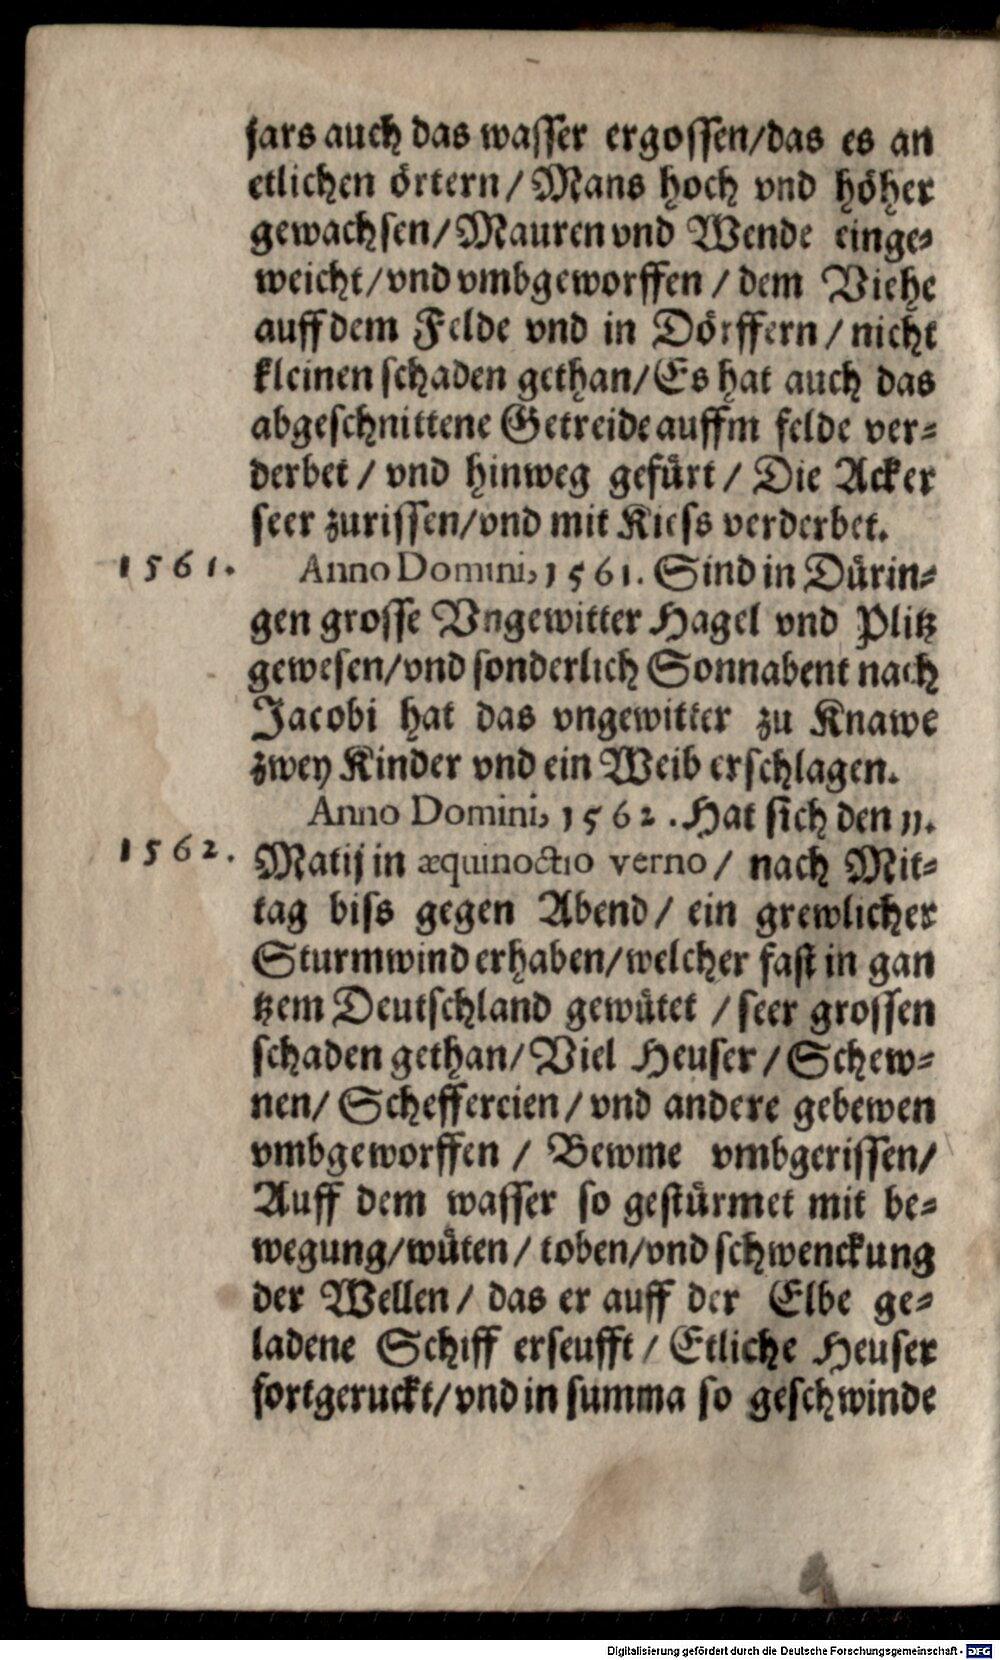 jars auch das wasser ergossen/das es an
etlichen örtern/Mans hoch vnd höher
gewachsen/Mauren vnd Wende einge-
weicht/vnd vmbgeworffen/dem Viehe
auff dem Felde vnd in Dörffern/nicht
kleinen schaden gethan/Es hat auch das
abgeschnittene Getreide auffm felde ver-
derbet/vnd hinweg gefürt/Die Acker
seer zurissen/vnd mit Kiess verderbet.
1561. Anno Domini, 1561. Sind in Dürin-
gen grosse Vngewitter Hagel vnd Plitz
gewesen/vnd sonderlich Sonnabent nach
Jacobi hat das vngewitter zu Knawe
zwey Kinder vnd ein Weib erschlagen.
Anno Domini, 1562. Hat sich den 11.
1562. Matij in æquinoctio verno/nach Mit-
tag biss gegen Abend/ein grewlicher
Sturmwind erhaben/welcher fast in gan
tzem Deutschland gewütet/seer grossen
schaden gethan/Viel Heuser/Schew-
nen/Scheffereien/vnd andere gebewen
vmbgeworffen/Bewme vmbgerissen/
Auff dem wasser so gestürmet mit be-
wegung/wüten/toben/vnd schwenckung
der Wellen/das er auff der Elbe ge-
ladene Schiff erseufft/Etliche Heuser
fortgeruckt/vnd in summa so geschwinde
Digitalisierung gefördert durch die Deutsche Forschungsgemeinschaft - DFG